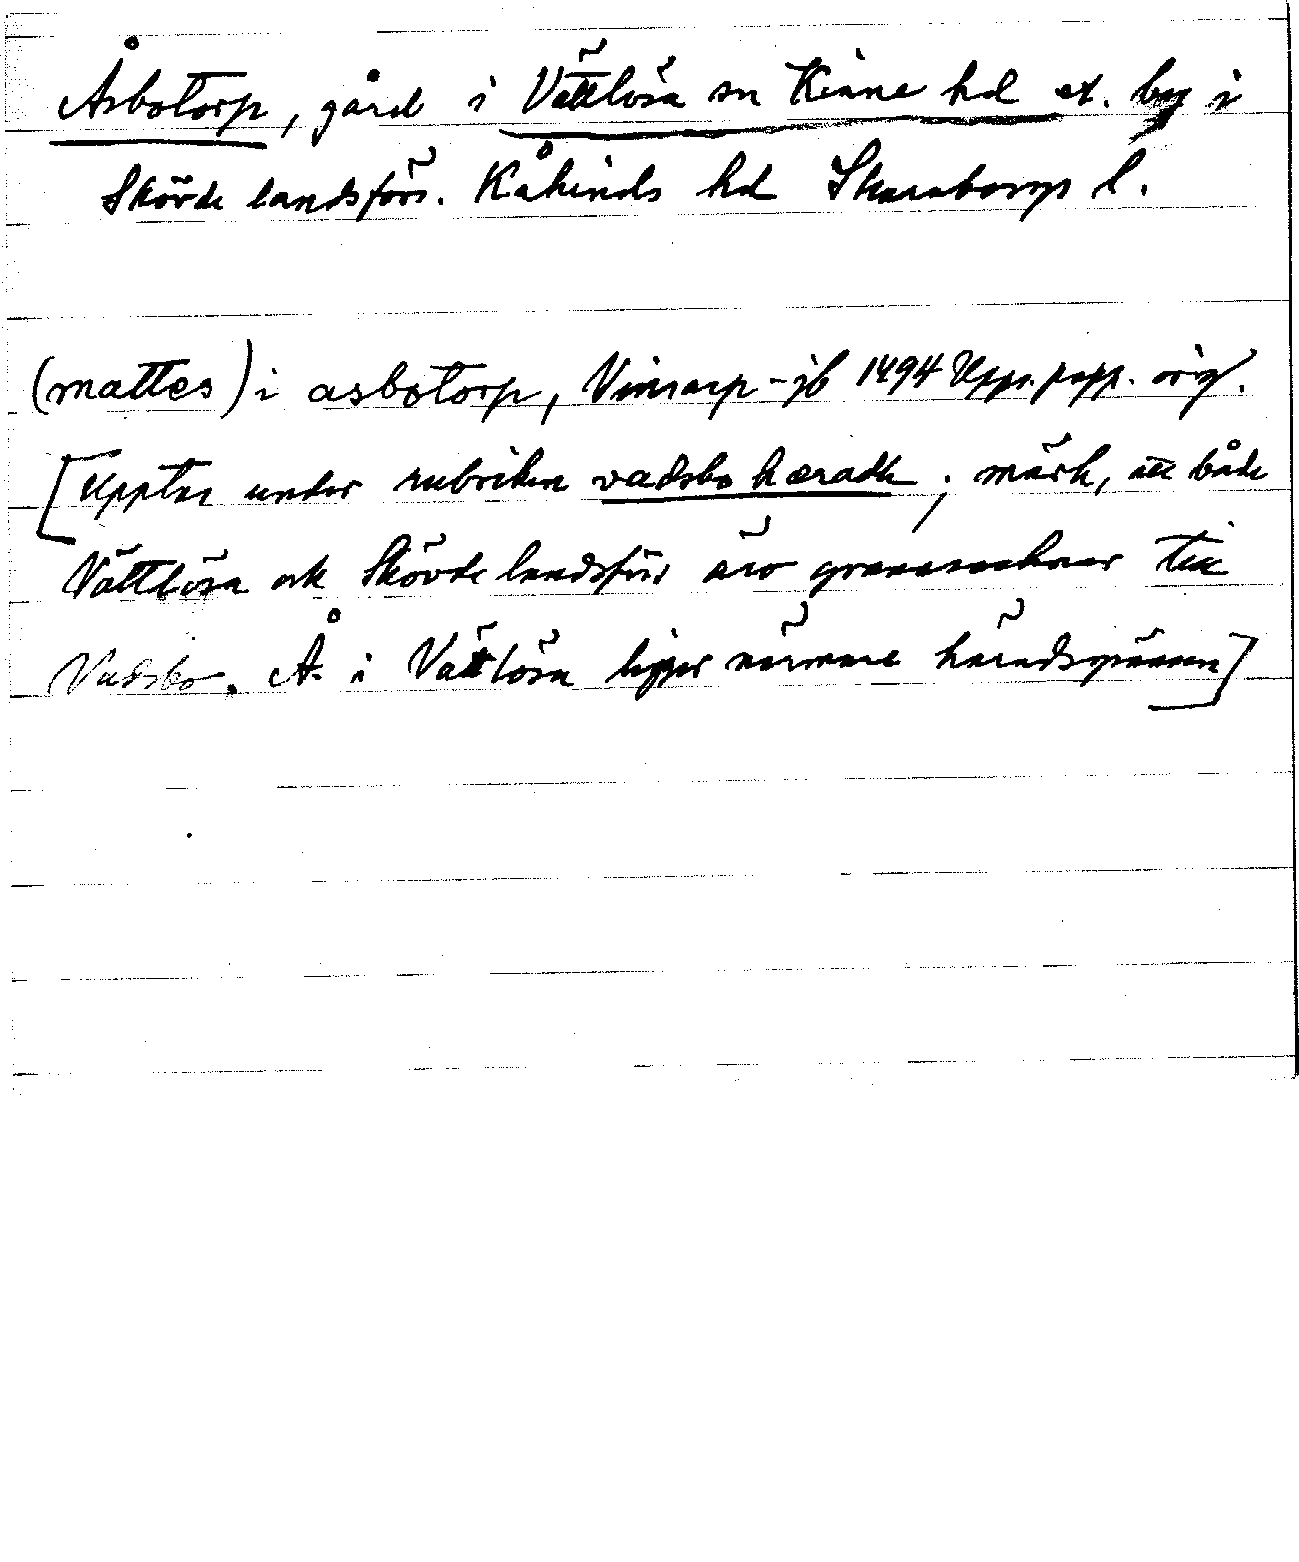 Åsbotorp, gård i Vättlösa sn Kinne hd el. by i
Skövde landsförs. Kåkinds hd Skaraborgs l.
(mattes) i asbotorp, Vinsarp-jb 1494 Upps. papp. orig.
[Upptar under rubriken vadsbo hæradh; märk, att både
Vättlösa ock Skövde landsförs äro grannsocknar till
Vadsbo. Å i Vättlösa ligger närmare häradsgränsen]